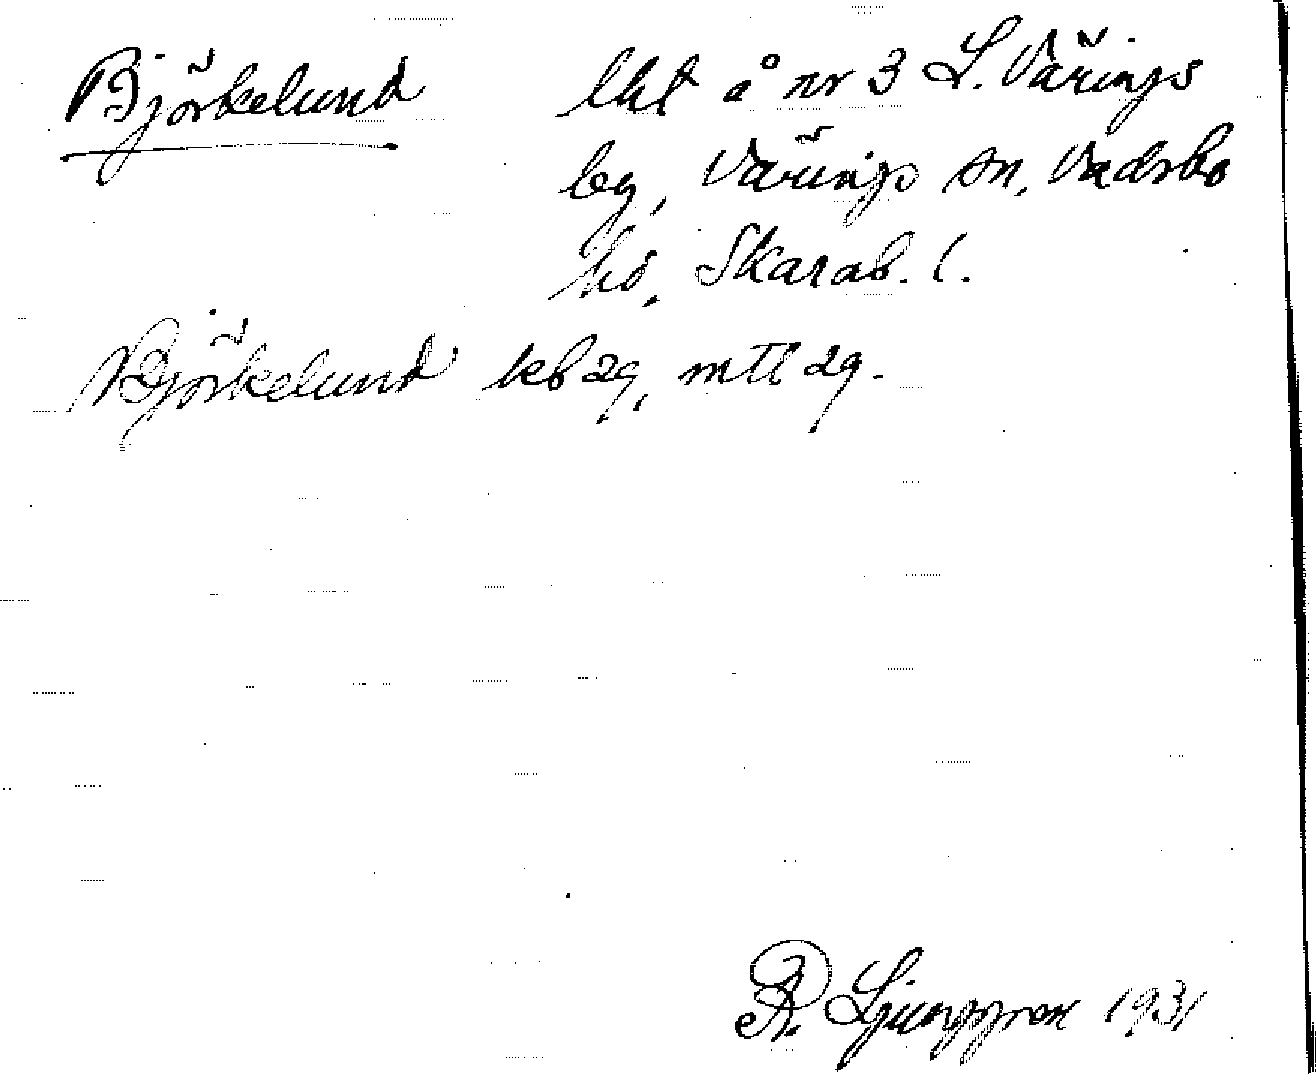 Björkelund lht å nr 3 L. Värings
by, Värings sn, Vadsbo
hd, Skarab. l.
Björkelund kb 29, mtl 29.
R. Ljunggren 1931